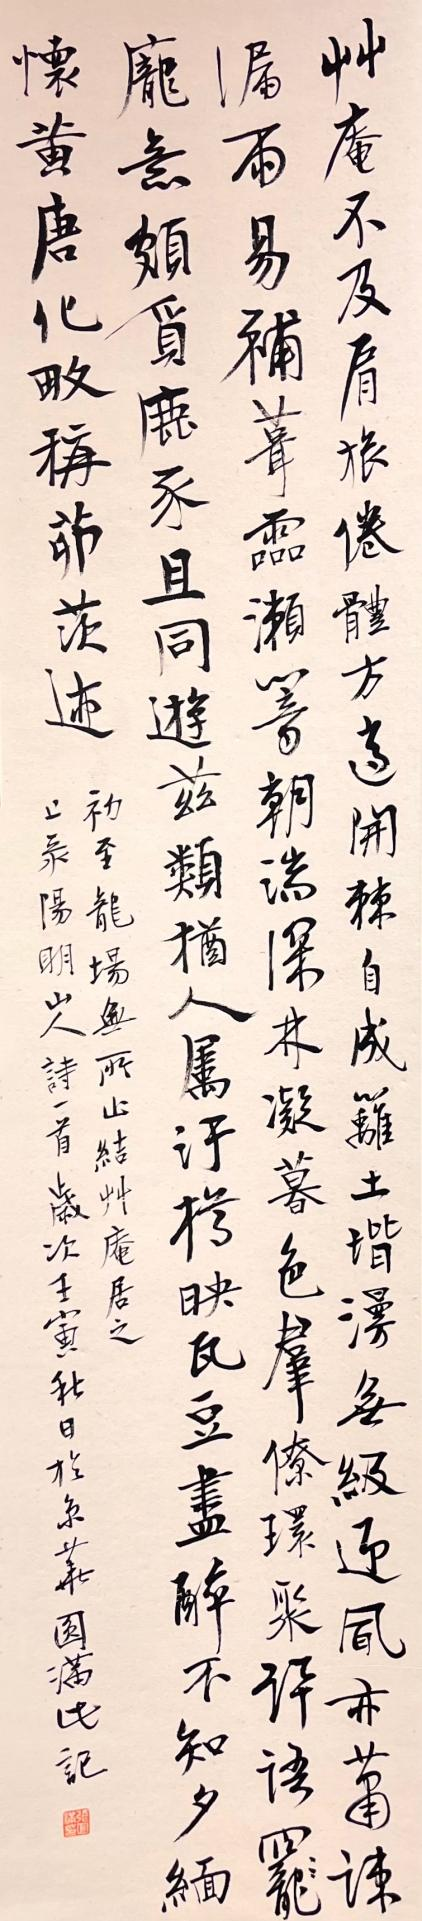 艸庵不及肩旅倦體方適開棘自成籬土堦漫無級迎風亦蕭疎
漏雨易補葺霝瀨響朝湍深林凝暮色羣僚環聚訊語
龐意頗質鹿豕且同遊茲類猶人屬汙樽映瓦豆盡醉不知夕緬
懷黃唐化略稱茆茨迹
初至龍場無所止結艸庵居之
上录陽明山人詩一首歲次壬寅秋日於京華圓滿氏記